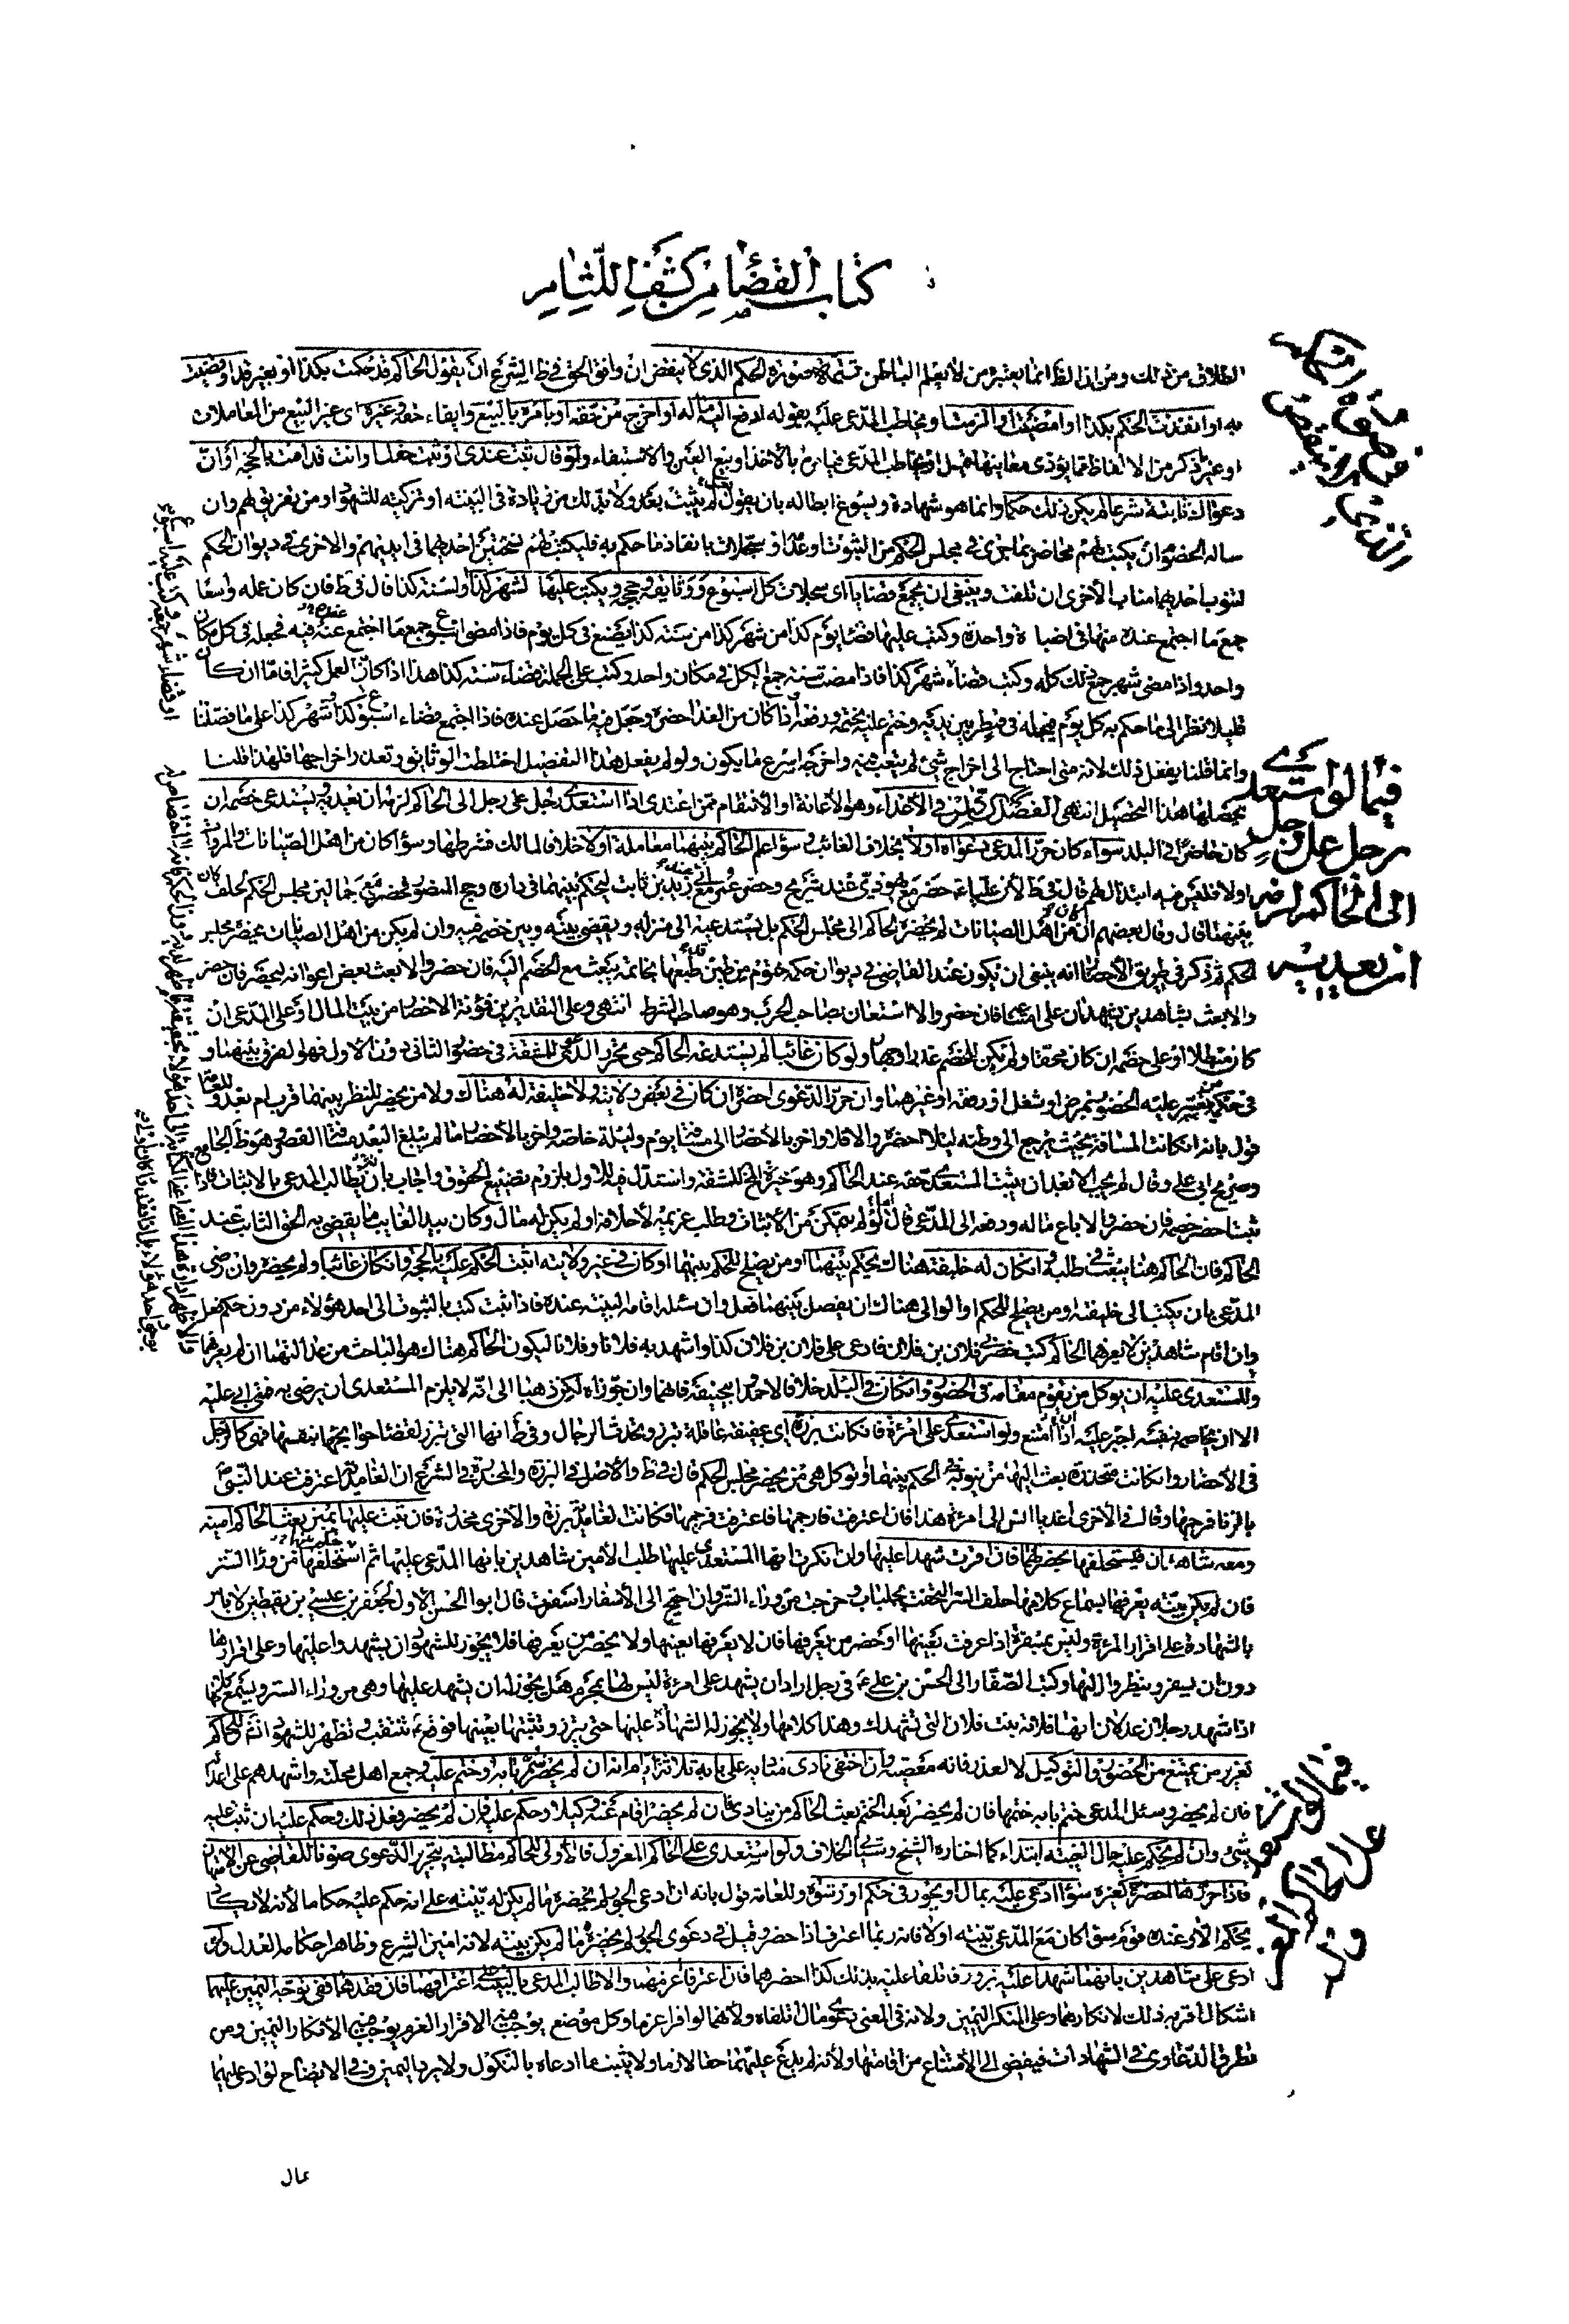 كتاب القضاء من كشف اللثام
الطلاق من ذلك ومن اذا لفظ انما يعتبر ممن لا يعلم الباطن تتمة صورة الحكم الذى لا ينقض ان وافق الحق فى ظ الشرع ان يقول الحاكم قد حكمت بكذا او بغير قد او قضيت
به او انفذت الحكم بكذا او امضيت او الزمت او يخاطب المدعى عليه بقوله ادفع اليه ماله او اخرج من حقه او يامره بالبيع وايفاء حقه وغيره اى غير البيع من المعاملات
او غير ما ذكر من الالفاظ مما يؤدى معانيها او يخاطب المدعى بالاخذ او بيع العين والاستيفاء ولو قال ثبت عندى او ثبت حقك او انت قد اقمت بالحجة او ان
دعواك ثابتة شرعا لم يكن ذلك حكما وانما هو شهادة ويسوغ ابطاله بان يقول لم يثبت بعد ولا بد لك من زيادة فى البينة او تزكية للشهود او من تفريق لهم وان
ساله الخصوم ان يكتب لهم محاضر بما جرى فى مجلس الحكم من الثبوت او عدمه او سجلات بانفاذ ما حكم به فليكتب لهم نسختين احديهما فى ايديهم والاخرى فى ديوان الحكم
لتنوب احديهما مناب الاخرى ان تلفت وينبغى ان يجمع قضايا اى سجلات كل اسبوع ووثايقه وحججه ويكتب عليها لشهر كذا ولسنة كذا قال فى ط فان كان عمله واسعا
جمع ما اجتمع عنده منها فى اضبارة واحدة وكتب عليها قضاء يوم كذا من شهر كذا من سنة كذا يصنع فى كل يوم فاذا مضى اسبوع جمع ما اجتمع عنده فيه فجعله فى كل مكان
واحد واذا مضى شهر جمع ذلك كله وكتب قضاء شهر كذا فاذا مضت سنة جمع الكل فى مكان واحد وكتب على الجملة قضاء سنة كذا هذا اذا كان العمل كثيرا فاما ان كان
قليلا نظر الى ما حكم به كل يوم فيجعله فى قمطر بين يديه وختم عليه بختمه ورفعه فاذا كان من الغد احضره وجعل فيه ما حصل عنده فاذا اجتمع قضاء اسبوع كذا وشهر كذا على ما فصلنا
وانما قلنا يفعل ذلك لانه متى احتاج الى اخراج شىء لم يتعب فيه واخرجه اسرع ما يكون ولو لم يفعل هذا التفصيل اختلطت الوثائق وتعذر اخراجها فلهذا قلنا
يحصلها هذا التحصيل انتهى الفصل السادس فى الاعداء وهو الاعانة او الانتقام ممن اعتدى اذا استعدى رجل على رجل الى الحاكم لزمه ان يعديه ويستدعى خصمه ان
كان حاضرا فى البلد سواء كان حرر المدعى دعواه اولا بخلاف الغائب وسواء علم الحاكم بينهما معاملة اولا خلافا لمالك فشرطها وسواء كان من اهل الصيانات والمروات
اولا فليس فيه ابتذال لهم قال فى ط لان عليا ع حضر مع يهودى عند شريح وحضر عمر مع ابى عند زيد بن ثابت ليحكم بينهما فى داره وحج المنصور فحضر مع جمالين مجلس الحكم لحلف كان
بينهما قال وقال بعضهم ان كان من اهل الصيانات لم يحضره الحاكم الى مجلس الحكم بل يستدعيه الى منزله ويقضى بينه وبين خصمه فيه وان لم يكن من اهل الصيانات يحضر مجلس
الحكم ثم ذكر فى طريق الاحضار انه ينبغى ان يكون عند القاضى فى ديوان حكمه ختوم من طين قد طبعها بخاتمه يبعث مع الخصم اليه فان حضر والا بعث بعض اعوانه ليحضر فان حضر
والا بعث بشاهدين يشهدان على امتناعه فان حضر والا استعان بصاحب الحرب وهو صاحب الشرط انتهى وعلى التقديرين فمؤنة الاحضار من بيت المال او على المدعى ان
كان مبطلا او على خصمه ان كان محقا ولم يكن للخصم عذر اوجها ولو كان غائبا لم يستدعه الحاكم حتى يحرر الدعوى للمشقة فى حضور الثانى دون الاول فهو الفرق بينهما و
فى حكمه من تعسر عليه الحضور بمرض او شغل او رفقة او غيرهما وان حرر الدعوى احضره ان كان فى بعض ولايته ولا خليفة له هناك ولا من يحضر للنظر بينهما قرب ام بعد وللعامة
قول بانه ان كانت المسافة بحيث يرجع الى وطنه ليلا احضره والا فلا واخر بالاحضار الى مسافة يوم وليلة خاصة واخر بالاحضار ما لم يبلغ البعد مسافة القصر وهو ظ الجامع
وصريح ابى على وقال لم يجب الا بعد ان يثبت المستعدى حقه عند الحاكم وهو خيرة الخ للمشقة واستدل فيه للاول بلزوم تضييع الحقوق واجاب بان يطالب المدعى بالاثبات فاذا
ثبتا حضر خصمه فان حضر والا باع ماله ودفعه الى المدعى قال ولو لم يتمكن من الاثبات وطلب غريمه لاحلافه او لم يكن له مال وكان بيد الغايب ما يقضى به الحق الثابت عند
الحاكم فان الحاكم هنا يبعث فى طلبه وان كان له خليفة هناك يحكم بينهما او من يصلح للحكم بينهما او كان فى غير ولايته اثبت الحكم عليه بالحجة وان كان غائبا ولم يحضره وان رضى
المدعى بان يكتب الى خليفته او من يصلح للحكم او الوالى هناك ان يفصل بينهما فعل وان سئله اقامة البينة عنده فاذا ثبت كتب بالثبوت الى احد هؤلاء من دون حكم فعل
وان اقام شاهدين لا يعرفهما الحاكم كتب حضر فلان بن فلان فادعى على فلان بن فلان كذا واشهد به فلانا وفلانا ليكون الحاكم هناك هو الباحث عن عدالتهما ان لم يعرفهما
وللمستعدى عليه ان يوكل من يقوم مقامه فى الحضور وان كان فى البلد خلافا لاحمد وابى حنيفة فانهما وان جوزاه لكن ذهبا الى انه لا يلزم المستعدى ان يرضى به فمتى ابى عليه
الا ان يخاصمه بنفسه اجبر عليه اذا امتنع ولو استعدى على امرئة فان كانت برزة اى عفيفة عاقلة تبرز وتحدث الرجال وفى ط انها التى تبرز لقضاء حوائجها بنفسها فهى كالرجل
فى الاحضار وان كانت مخدرة بعث اليها من ينوبه فى الحكم بينهما او توكل هى من يحضر مجلس الحكم قال فى ط والاصل فى البرزة والمخدرة فى الشرع ان الغامدية اعترفت عند النبى ص
بالزنا فرجمها وقال فى الاخرى اغد يا انيس الى امرئة هذا فان اعترفت فارجمها فاعترفت فرجمها فكانت الغامدية برزة والاخرى مخدرة فان ثبت عليها يمين بعث الحاكم امينه
ومعه شاهدان فيستحلفها بحضرتهما فان اقرت شهدا عليها وان انكرت انها المستعدى عليها طلب الامين شاهدين بانها المدعى عليها ثم استحلفها من وراء الستر
فان لم يكن بينة يعرفها بسماع كلامها احلف الستر التحفت بجلباب وخرجت من وراء الستر وان احتيج الى الاسفار اسفرت قال ابو الحسن الاول لجعفر بن عيسى بن يقطين لا باس
بالشهادة على اقرار المرءة وليس بمسفرة اذا عرفت بعينها او حضر من يعرفها فان لا يعرفها بعينها ولا يحضر من يعرفها فلا يجوز للشهود ان يشهدوا عليها وعلى اقرارها
دون ان يسفر وينظروا اليها وكتب الصفار الى الحسن بن على ع فى رجل اراد ان يشهد على امرءة ليس لها بمحرم هل يجوز له ان يشهد عليها وهى من وراء الستر ويسمع كلامها
اذا شهد رجلان عدلان انها فلانة بنت فلان التى تشهدك وهذا كلامها ولا يجوز له الشهادة عليها حتى يبرز وتثبتها بعينها فوقع ع تتنقب وتظهر للشهود انشم للحاكم
تعزير من يمتنع من الحضور والتوكيل لا لعذر فانه معصية وان اختفى نادى مناديه على بابه ثلاثة ايام انه ان لم يحضر سمر بابه او ختم عليه وجمع اهل محلته واشهدهم على اعذاره
فان لم يحضر وسئل المدعى ختم بابه ختمها فان لم يحضر بعد الختم بعث الحاكم من ينادى ان لم يحضر اقام عنه وكيلا وحكم عليه فان لم يحضر وفعل ذلك وحكم عليه ان ثبت عليه
شىء وان لم يحكم عليه حال الغيبة ابتداء كما اختاره الشيخ وسياتى الخلاف ولو استعدى على الحاكم المعزول فالاولى للحاكم مطالبته بتحرير الدعوى صونا للقاضى عن الامتهان
فاذا حررها احضره كغيره سواء ادعى عليه بمال او بجور فى حكم او رشوة وللعامة قول بانه ان ادعى الجور لم يحضره ما لم يكن له بينة على انه حكم عليه حكما ما لانه لا يكاد
يحكم الا وعنده قوم موثقوا كان مع المدعى بينة اولا فانه ربما اعترف اذا حضر وقيل فى دعوى الجور لم يحضره ما لم يكن بينة لانه امين الشرع وظاهر احكامه العدل ولو
ادعى على شاهدين بانهما شهدا عليه بزور فاتلفا عليه بذلك كذا احضرهما فان اعترفا غرمهما والا طالب المدعى بالبينة على اعترافهما فان فقدهما ففى توجه اليمين عليهما
اشكال اقربه ذلك لانكارهما وعلى المنكر اليمين ولانه فى المعنى دعوى مال اتلفاه ولانهما لو اقرا غرما وكل موضع يوجب فيه الاقرار الغرم يوجب فيه الانكار اليمين ومن
تطرق الدعاوى فى الشهادات فيفضى الى الامتناع من اقامتها ولانه لم يدع عليهما حقا لازما ولا يثبت ما ادعاه بالنكول ولا يرد اليمين وفى الايضاح لو ادعى عليهما
فيما لو استعدى
رجل على رجل
الى الحاكم لزمه
ان يعديه
فيما لو استعدى
على الحاكم المعزول
عمال